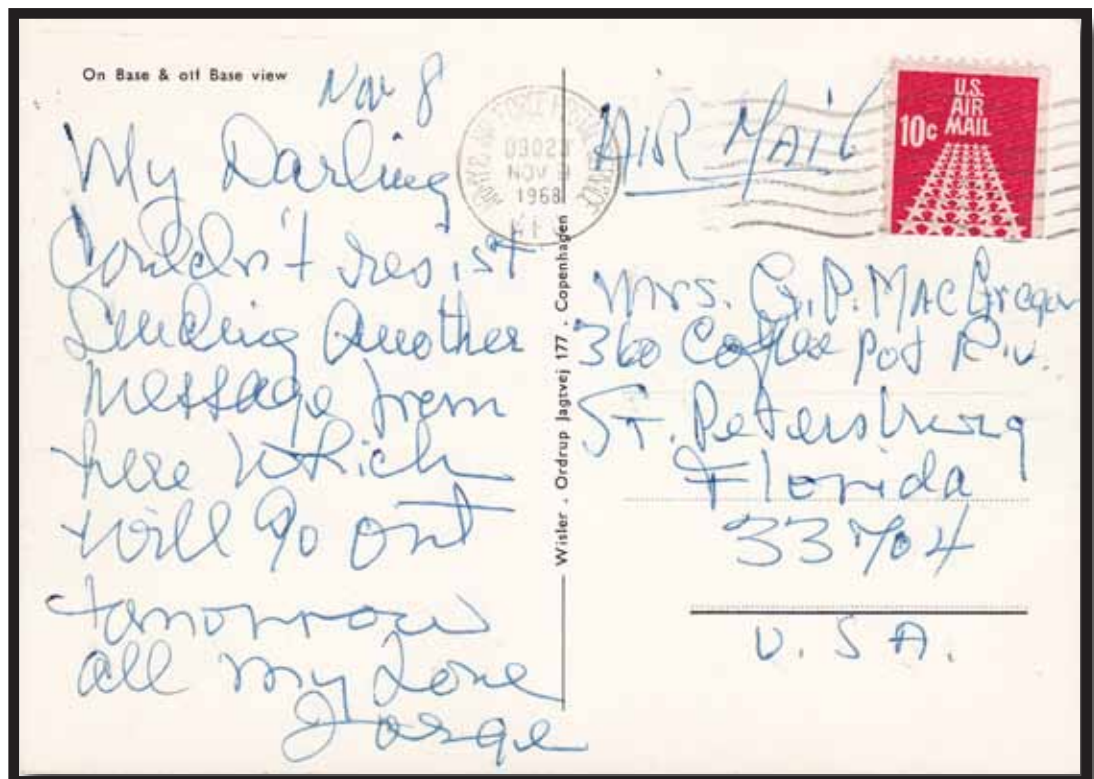 On Base & off Base view
Nov 8
My Darling
Couldn't resist
Sending Another
message from
here which
will go out
tomorrow
all my Love
Wisler . Ordrup Jagtvej 177 . Copenhagen
AIR FORCE POSTAL
09023
NOV 9
1968
AIR MAIL
U.S.
AIR
MAIL
10c
Mrs. G.P. MacGregor
360 Coffee pot Riv.
St. Petersburg
Florida
33704
U.S.A.